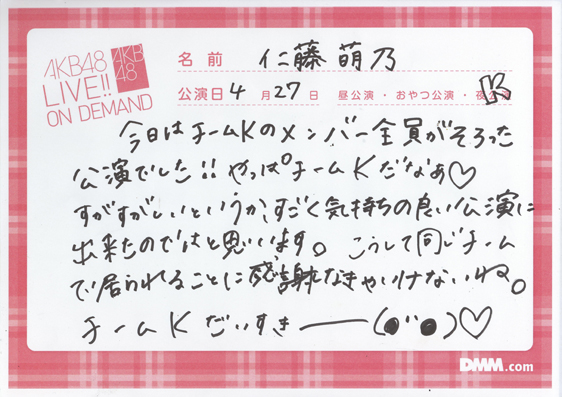 AKB48
LIVE!!
ON DEMAND
AKB
48
名前 仁藤萌乃
公演日 4月27日 昼公演・おやつ公演・夜
K
今日はチームKのメンバー全員がそろった
公演でした!!やっぱチームKだなぁ♡
すがすがしいというか、すごく気持ちの良い公演に
出来たのではと思います。こうして同じチーム
で居られることに感謝しなきゃいけないね。
チームKだいすきー(●''●)♡
DMM.com